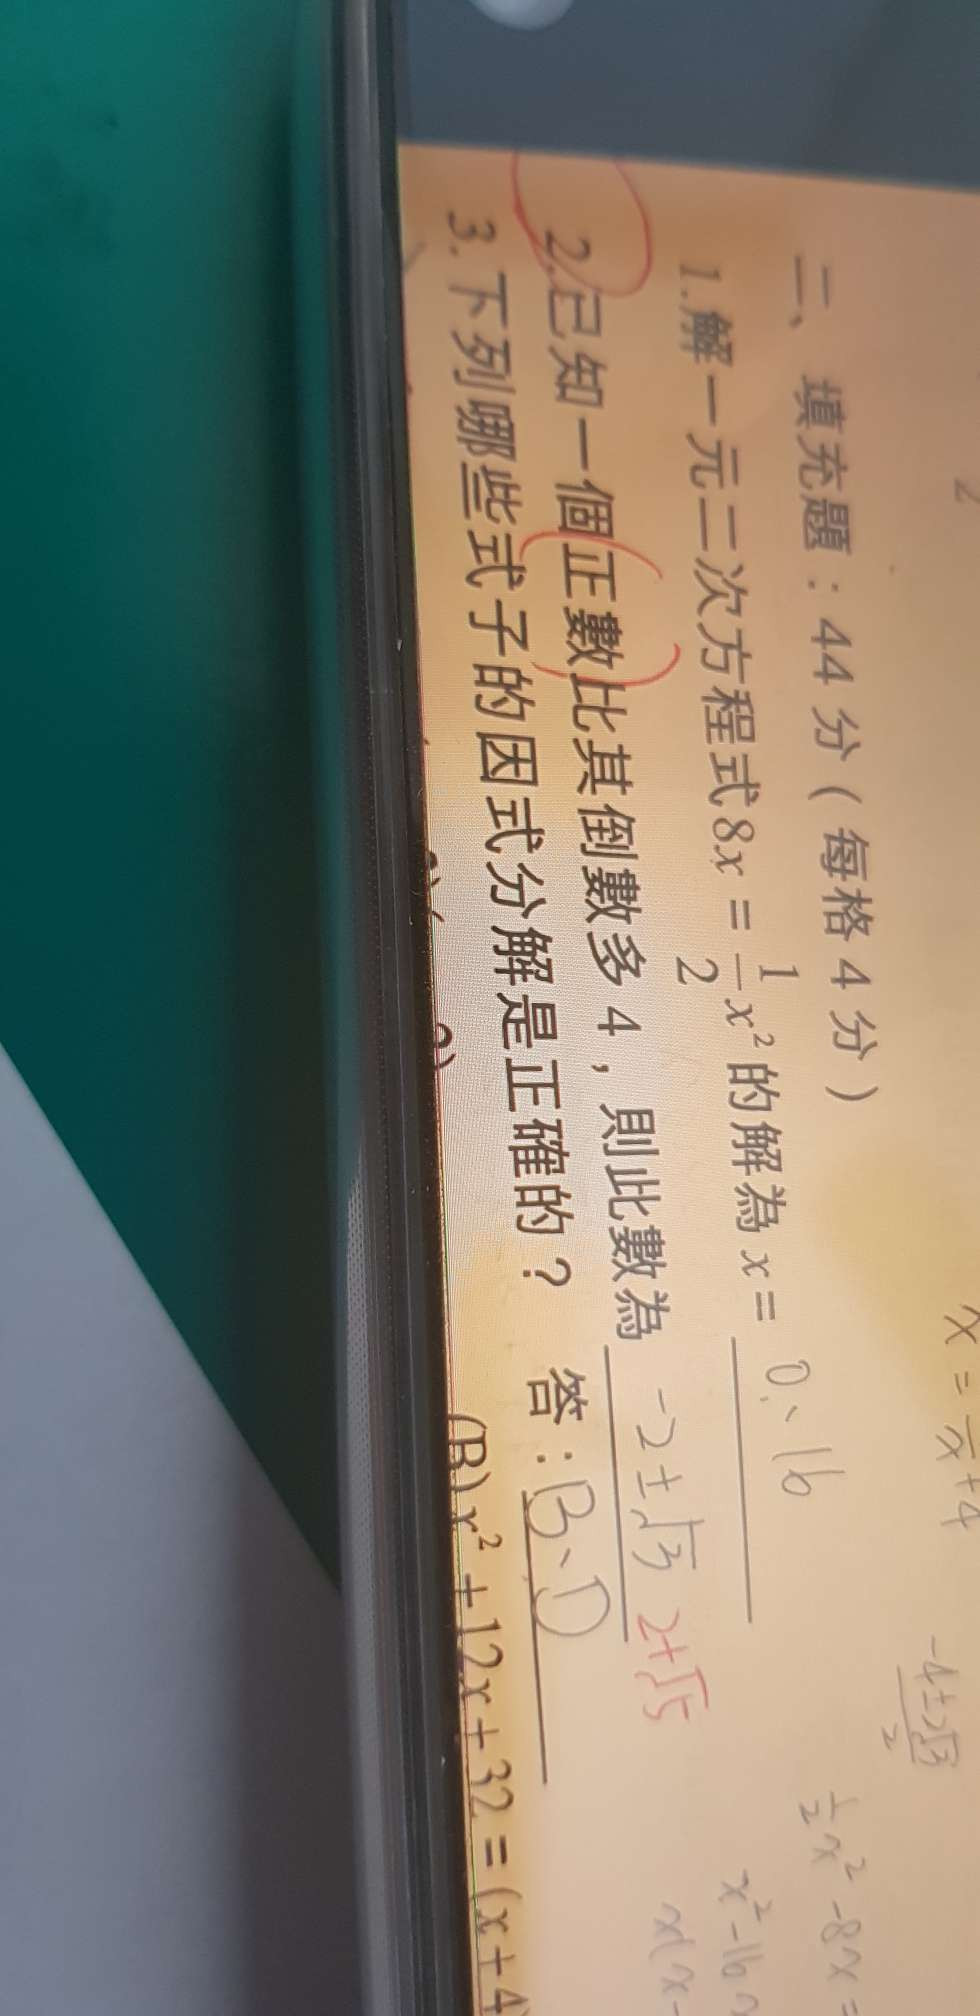 x = 1/x + 4
-4±2√3 / 2
二、填充題：44 分（每格 4 分）
1/2 x² - 8x =
1.解一元二次方程式8x = 1/2 x²的解為 x = 0、16
x² - 16
x(x-
2.已知一個正數比其倒數多 4，則此數為 -2±√3 2+√5
3.下列哪些式子的因式分解是正確的？ 答：B、D
(B) x² +12x+32 = (x+4)